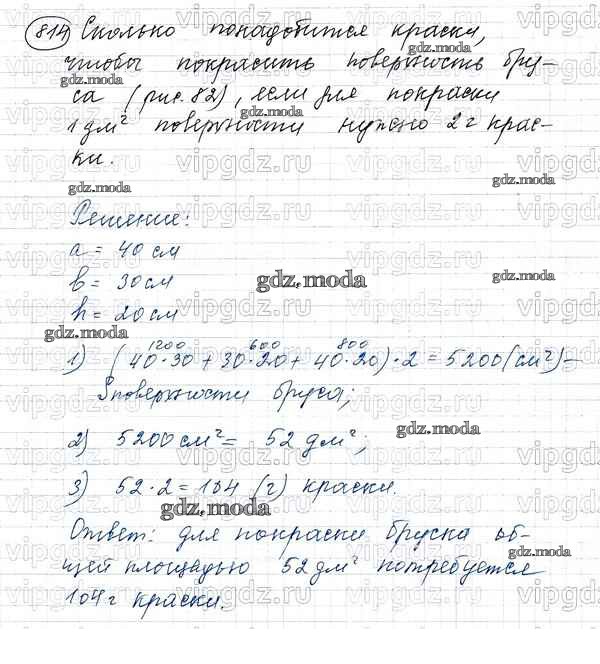 814 Сколько понадобится краски,
чтобы покрасить поверхность бру-
са (рис. 82), если для покраски
1 дм² поверхности нужно 2 г крас-
ки.
Решение:
a = 40 см
b = 30 см
h = 20 см
1200 600 800
1) (40·30 + 30·20 + 40·20)·2 = 5200 (см²) –
S поверхности бруса;
2) 5200 см² = 52 дм²;
3) 52·2 = 104 (г) краски.
Ответ: для покраски бруска об-
щей площадью 52 дм² потребуется
104 г краски.
gdz.moda
vipgdz.ru